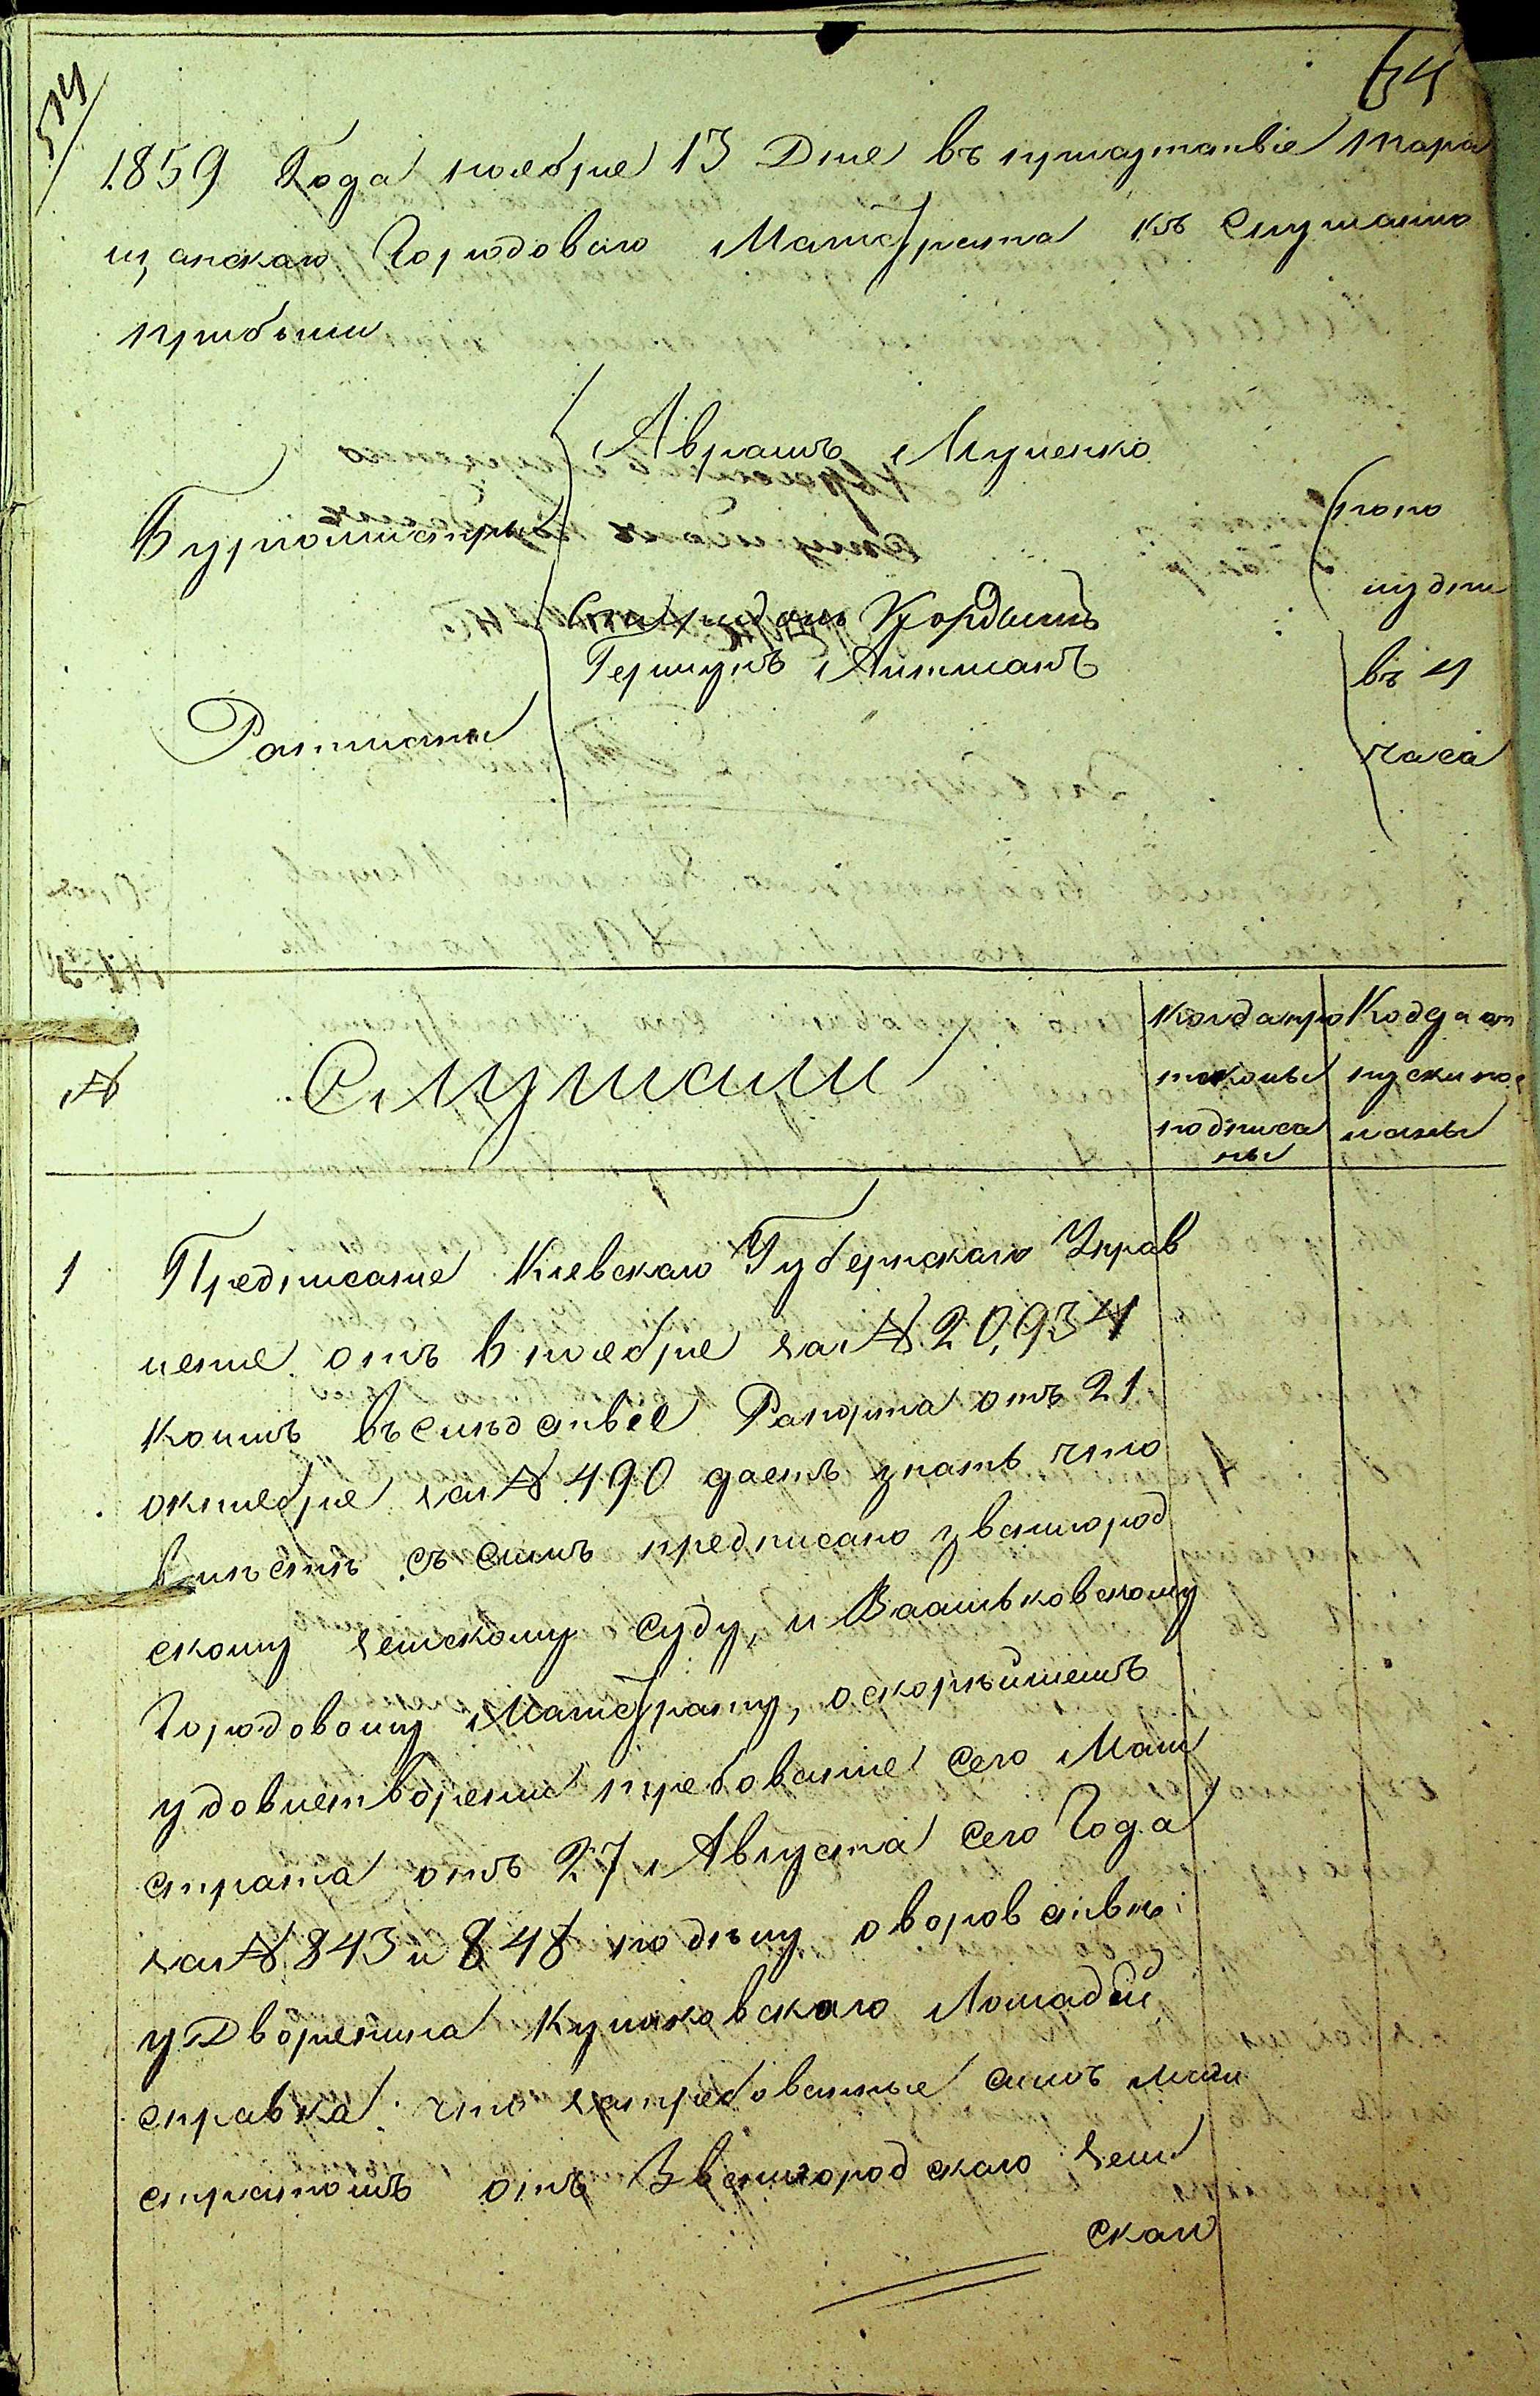 54
1859 Года ноября 13 Дня въ присутствіе Тара
щанскаго Городоваго Магистрата къ слушанію
прибыли
Аврамъ Луценко
Бургомистры
попо
лудни
Гершунъ
въ 4
Ратманы
часа
№
Слушали
Когда про
токолы
подписа
ны
Когда от
пуски по
сланы
1
Предписание Киевскаго Губернскаго Управ
ления отъ 6 ноября за № 20,934
коимъ въследствіе Рапорта отъ 21
октября за № 490 даетъ знать что
вместе съ симъ предписано звенигород
скому земскому суду, и Васильковскому
Городовому Магистрату, о скорейшемъ
удовлетворении требование сего Маги
страта отъ 27 Августа сего Года
за № 843 и 848 по делу о воровстве
у Дворянина Куликовскаго Лошадей
справка: что затребованные симъ маги
стратомъ отъ Звенигородскаго зем
скаго